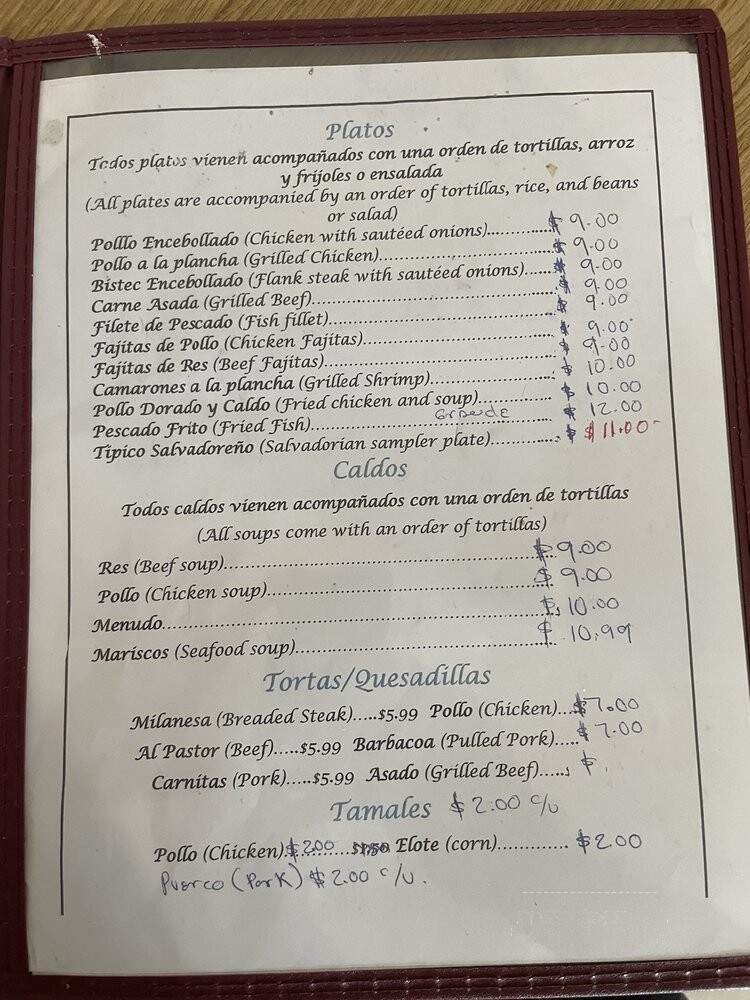 Platos
Todos platos vienen acompañados con una orden de tortillas, arroz
y frijoles o ensalada
(All plates are accompanied by an order of tortillas, rice, and beans
or salad)
Polllo Encebollado (Chicken with sautéed onions)............$ 9.00
Pollo a la plancha (Grilled Chicken)...............................$ 9.00
Bistec Encebollado (Flank steak with sautéed onions)......$ 9.00
Carne Asada (Grilled Beef)............................................$ 9.00
Filete de Pescado (Fish fillet).........................................$ 9.00
Fajitas de Pollo (Chicken Fajitas)...................................$ 9.00
Fajitas de Res (Beef Fajitas)..........................................$ 9.00
Camarones a la plancha (Grilled Shrimp).......................$ 10.00
Pollo Dorado y Caldo (Fried chicken and soup)...............$ 10.00
Pescado Frito (Fried Fish)............Grande............$ 12.00
Típico Salvadoreño (Salvadorian sampler plate)............$ $11.00
Caldos
Todos caldos vienen acompañados con una orden de tortillas
(All soups come with an order of tortillas)
Res (Beef soup)......................................................$9.00
Pollo (Chicken soup)...............................................$ 9.00
Menudo................................................................$ 10.00
Mariscos (Seafood soup)..........................................$ 10.99
Tortas/Quesadillas
Milanesa (Breaded Steak).....$5.99 Pollo (Chicken)...$7.00
Al Pastor (Beef).....$5.99 Barbacoa (Pulled Pork)....$7.00
Carnitas (Pork).....$5.99 Asado (Grilled Beef).....$
Tamales $2.00 c/u
Pollo (Chicken)$2.00 ....$1.50 Elote (corn)............$2.00
Puerco (Pork) $2.00 c/u.